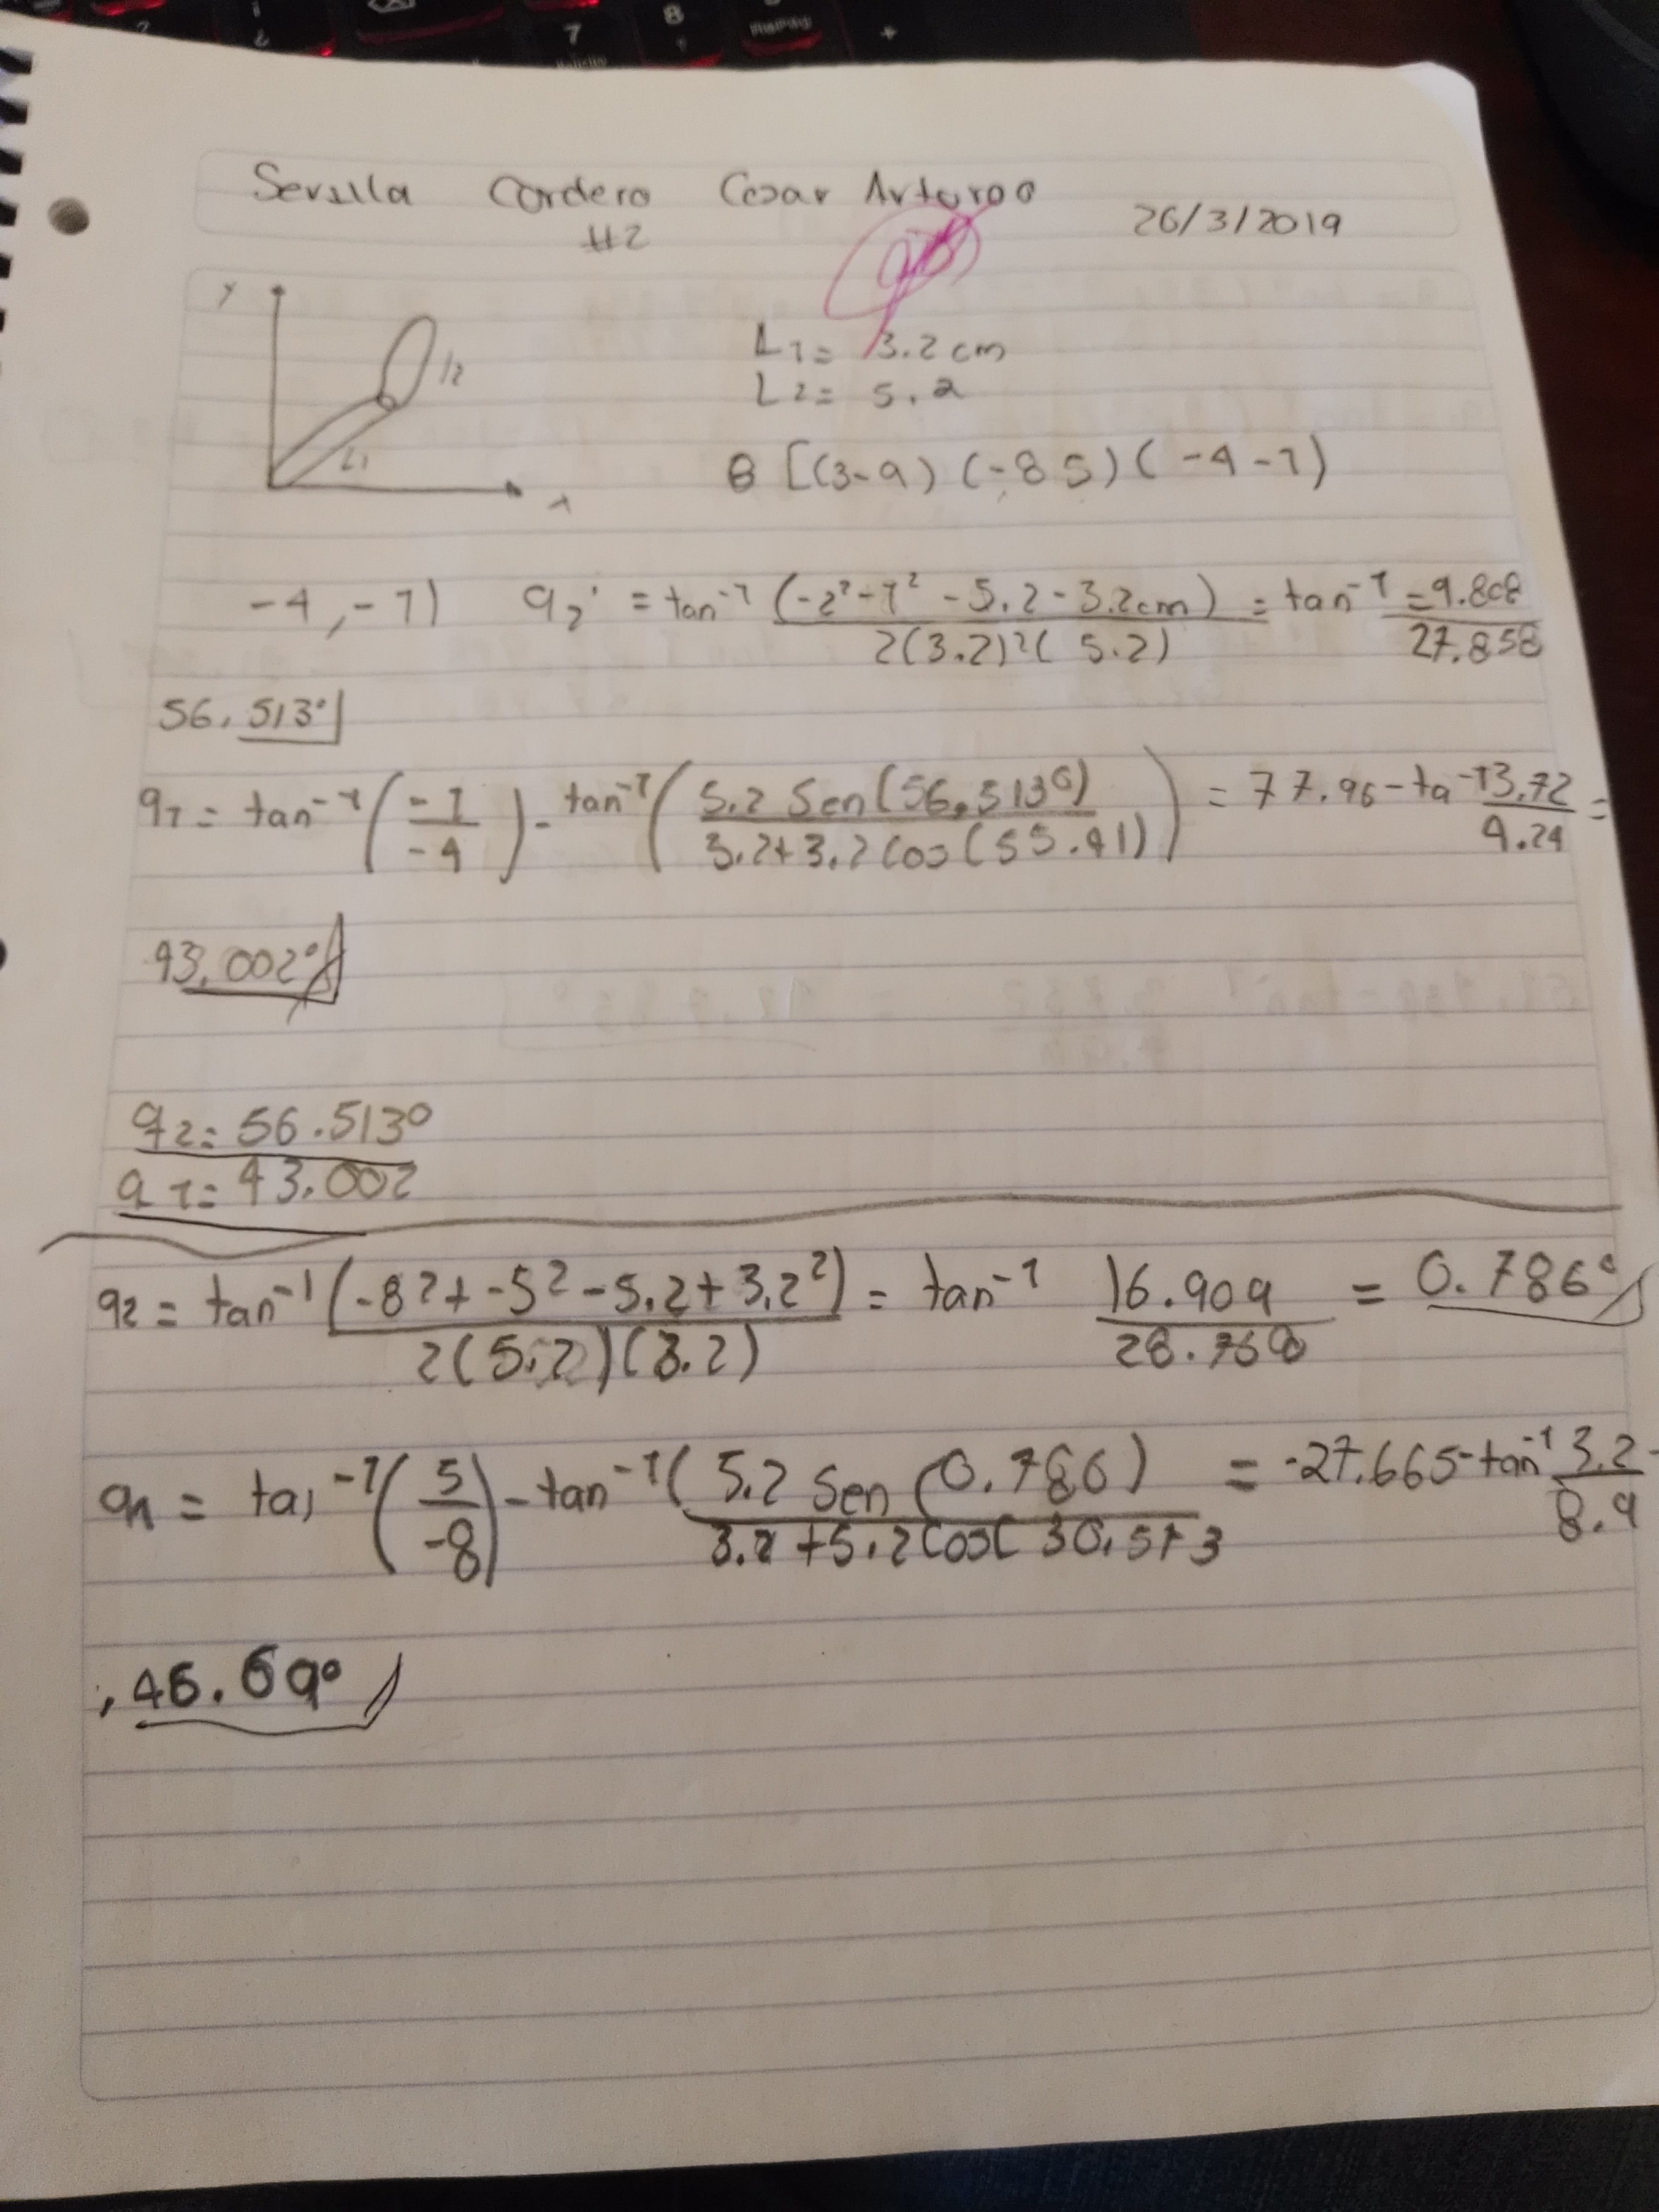 Sevilla Cordero Cesar Arturo
#2
26/3/2019
y
L1 = 3.2 cm
l2
L2 = 5.2
L1
B [(3-9) (-8 5) (-4-1)
x
-4,-1) q2 = tan⁻¹ (-2²-1² -5.2-3.2cm) / 2(3.2)²(5.2) = tan⁻¹ = 9.808 / 27.858
56.513°
q1 = tan⁻¹ (-1 / -4) - tan⁻¹ (5.2 Sen(56.513°) / 3.2+3.2 Cos(55.41)) = 77.96 - ta⁻¹ 3.72 / 4.24 =
43.002°
q2 = 56.513°
q1 = 43.002
q2 = tan⁻¹ (-8²+-5²-5.2+3.2²) / 2(5.2)(3.2) = tan⁻¹ 16.909 / 28.768 = 0.786°
q1 = tan⁻¹ (5 / -8) - tan⁻¹ (5.2 Sen (0.786) / 3.2+5.2 Cos( 30.513 = -27.665-tan⁻¹ 3.2 / 8.9
46.69°